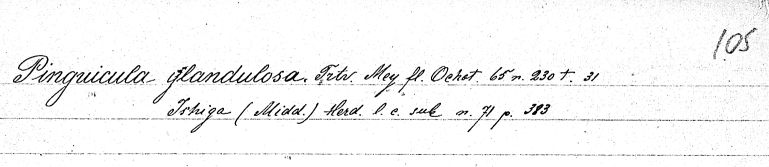 105
Pinguicula glandulosa. Trtv. Mey fl. Ochot. 65 n. 230 t. 31
Ishiga (Midd.) Herd. l. c. sub n. 71 p. 383